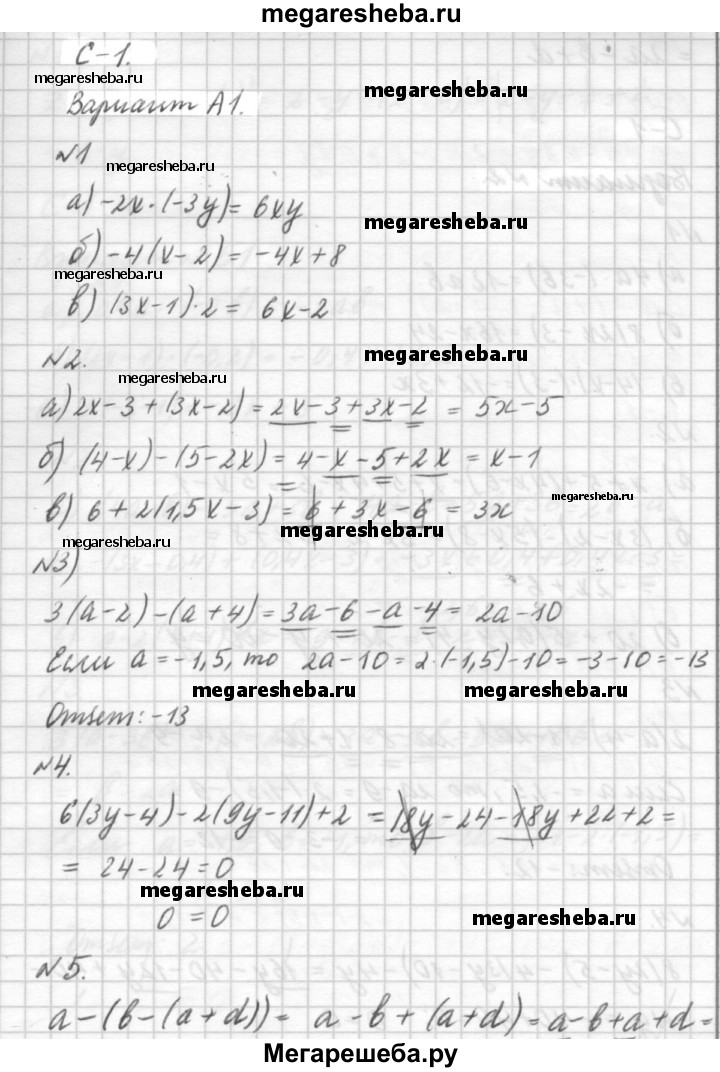 megaresheba.ru
С-1.
megaresheba.ru
megaresheba.ru
Вариант А1.
№1
megaresheba.ru
а) -2x·(-3y)= 6xy
megaresheba.ru
б) -4(x-2) = -4x+8
megaresheba.ru
megaresheba.ru
в) (3x-1)·2 = 6x-2
№2.
megaresheba.ru
megaresheba.ru
а) 2x-3+(3x-2) = 2x-3+3x-2 = 5x-5
б) (4-x)-(5-2x) = 4-x-5+2x = x-1
megaresheba.ru
в) 6+2(1,5x-3) = 6+3x-6 = 3x
megaresheba.ru
megaresheba.ru
№3)
3(a-2)-(a+4) = 3a-6-a-4 = 2a-10
Если a = -1,5, то 2a-10 = 2·(-1,5)-10 = -3-10 = -13
megaresheba.ru
megaresheba.ru
Ответ: -13
№4.
6(3y-4)-2(9y-11)+2 = 18y-24-18y+22+2 =
= 24-24=0
megaresheba.ru
0 = 0
megaresheba.ru
№5.
a-(b-(a+d)) = a-b+(a+d) = a-b+a+d =
Мегарешеба.ру